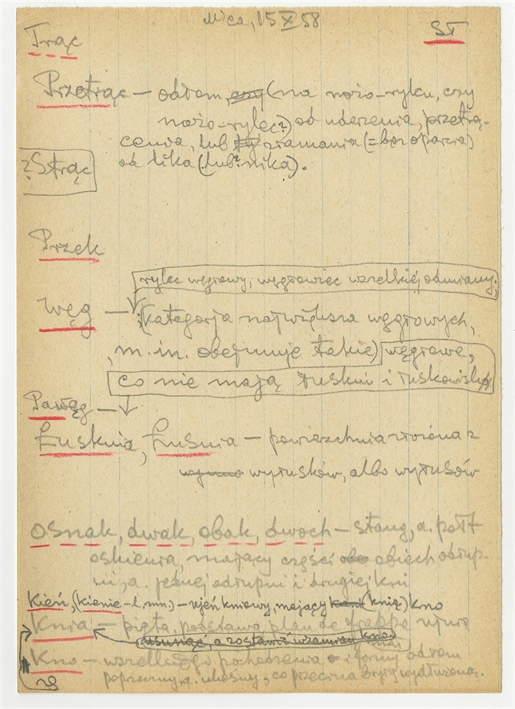 Nica, 15 X 58
ST
Trąc
Przetrąc — odłam, (na nożo-rylku, czy
nożo-rylec?) od uderzenia, przetrą-
cenia, lub złamania (= bez oparcia)
od lika (lub? nika).
? Strąc
Przek
rylec węgrowy, węgrowiec wszelkiej odmiany,
Węg — (kategorja największa węgrowych,
m. in. obejmuje także) węgrowe,
co nie mają łuskni i
Pawęg —
Łusknia, Łusnia — powierzchnia złożona z
wyłusków, albo wyłusów
osnak, dwak, obak, dwoch — a.
mający części obiech odrup-
ni, a. jednej odrupni i drugiej kni
Kień, (kienie - l. mn.) — kniowy, mający knię) kno
Knia — pięta, podstawa,
usunąć, a zostawić wzamian kno
Kno — wszelkiego pochodzenia i formy odłam
poprzeczny, a. ukośny, co przecina bryłę wydłużoną.